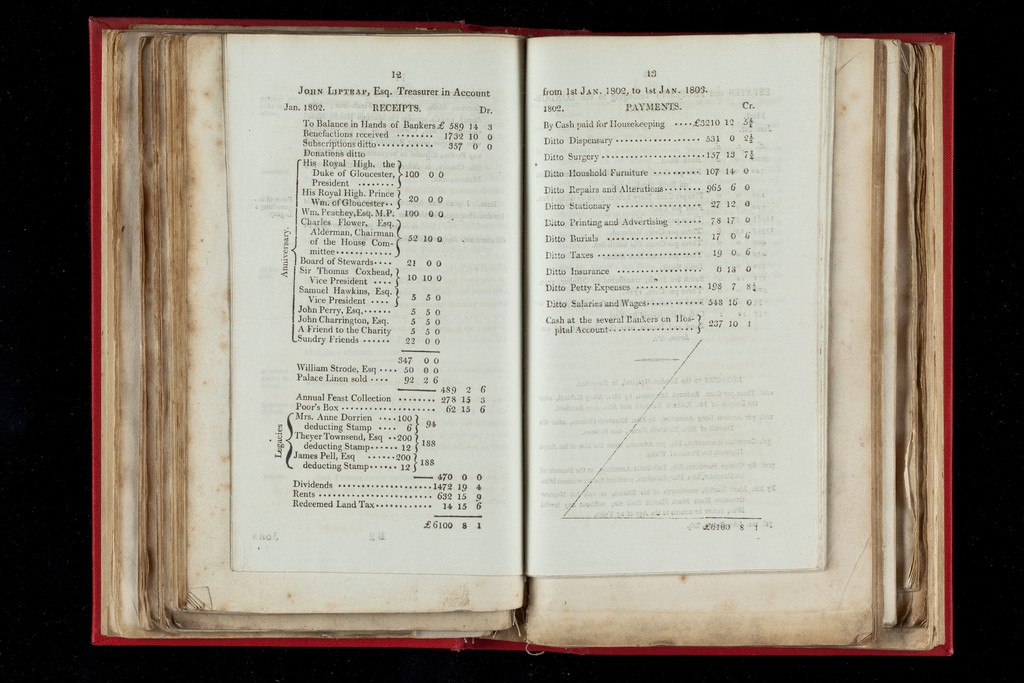 12
JOHN LIPTRAP, Esq. Treasurer in Account
Jan. 1802. RECEIPTS. Dr.
To Balance in Hands of Bankers £ 589 14 3
Benefactions received ········ 1732 10 0
Subscriptions ditto ············ 357 0 0
Donations ditto
Anniversary.
His Royal High. the
Duke of Gloucester, 100 0 0
President ········
His Royal High. Prince
Wm. of Gloucester·· 20 0 0
Wm. Peachey, Esq. M.P. 100 0 0
Charles Flower, Esq.
Alderman, Chairman
of the House Com- 52 10 0
mittee ············
Board of Stewards···· 21 0 0
Sir Thomas Coxhead,
Vice President ···· 10 10 0
Samuel Hawkins, Esq.
Vice President ···· 5 5 0
John Perry, Esq.······ 5 5 0
John Charrington, Esq. 5 5 0
A Friend to the Charity 5 5 0
Sundry Friends ······ 22 0 0
347 0 0
William Strode, Esq ···· 50 0 0
Palace Linen sold ···· 92 2 6
489 2 6
Annual Feast Collection ········ 278 15 3
Poor's Box ···················· 62 15 6
Legacies
Mrs. Anne Dorrien ····100
deducting Stamp ···· 6 94
Theyer Townsend, Esq ··200
deducting Stamp······ 12 188
James Pell, Esq ······200
deducting Stamp······ 12 188
470 0 0
Dividends ····················1472 19 4
Rents ························ 632 15 9
Redeemed Land Tax············ 14 15 6
£6100 8 1
13
from 1st JAN. 1802, to 1st JAN. 1803.
1802. PAYMENTS. Cr.
By Cash paid for Housekeeping ····£3210 12 5½
Ditto Dispensary ·················· 531 0 2½
Ditto Surgery ······················ 157 13 7½
Ditto Houshold Furniture ·········· 107 14 0
Ditto Repairs and Alterations········ 965 6 0
Ditto Stationary ·················· 27 12 0
Ditto Printing and Advertising ······ 78 17 0
Ditto Burials ···················· 17 0 6
Ditto Taxes ······················ 19 0 6
Ditto Insurance ·················· 0 13 0
Ditto Petty Expenses ·············· 198 7 8¼
Ditto Salaries and Wages············ 548 16 0
Cash at the several Bankers on Hos-
pital Account···················· 237 10 1
£6100 8 1